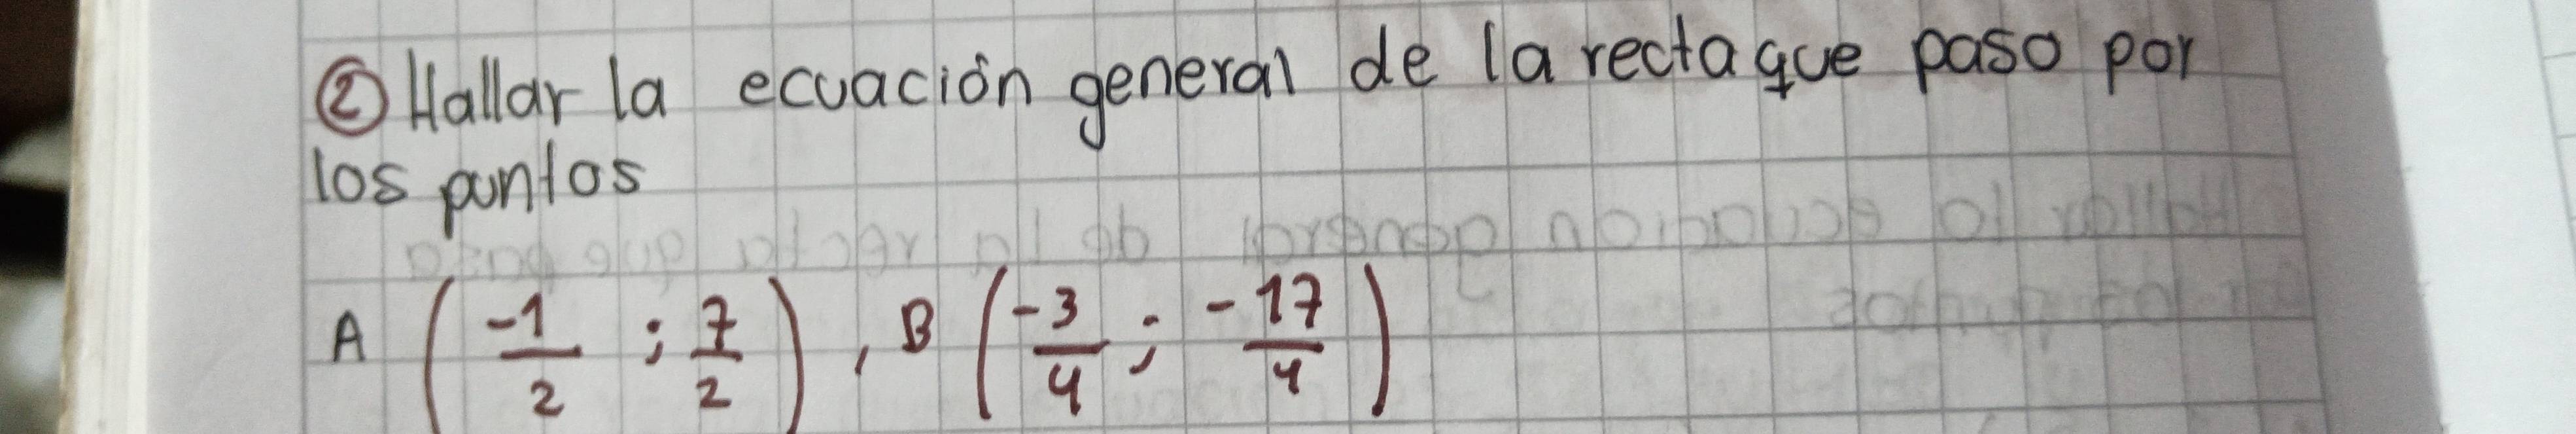 ② Hallar la ecuación general de la recta que paso por
los puntos
A (-1/2 ; 7/2) , B (-3/4 ; -17/4)